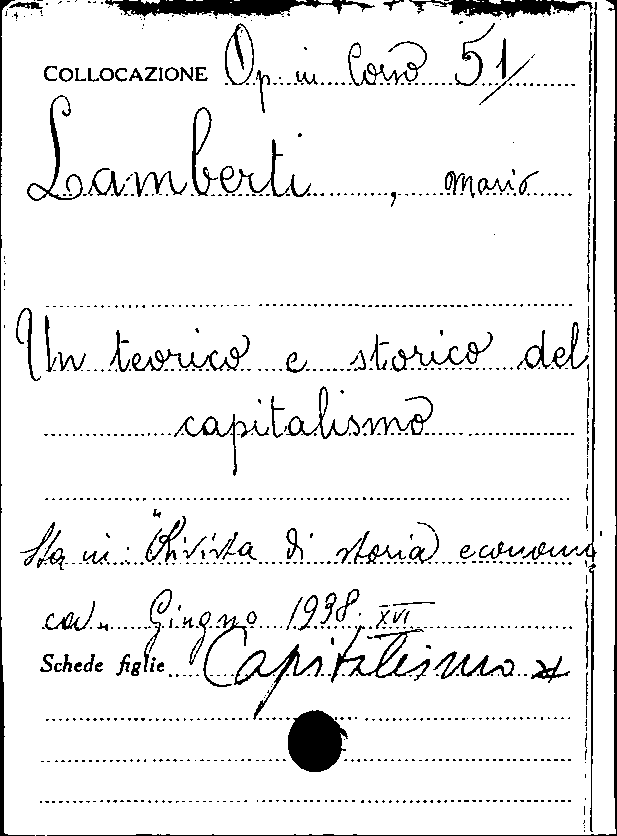 COLLOCAZIONE Op. in Corso 51/
Lamberti, Mario
Un teorico e storico del
capitalismo
Sta in: "Rivista di storia economi
ca" Giugno 1938. XVI
Schede figlie Capitalismo *